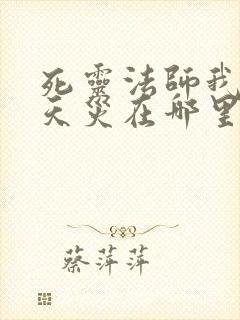 死靈法師我
天災在哪里
蔡萍萍